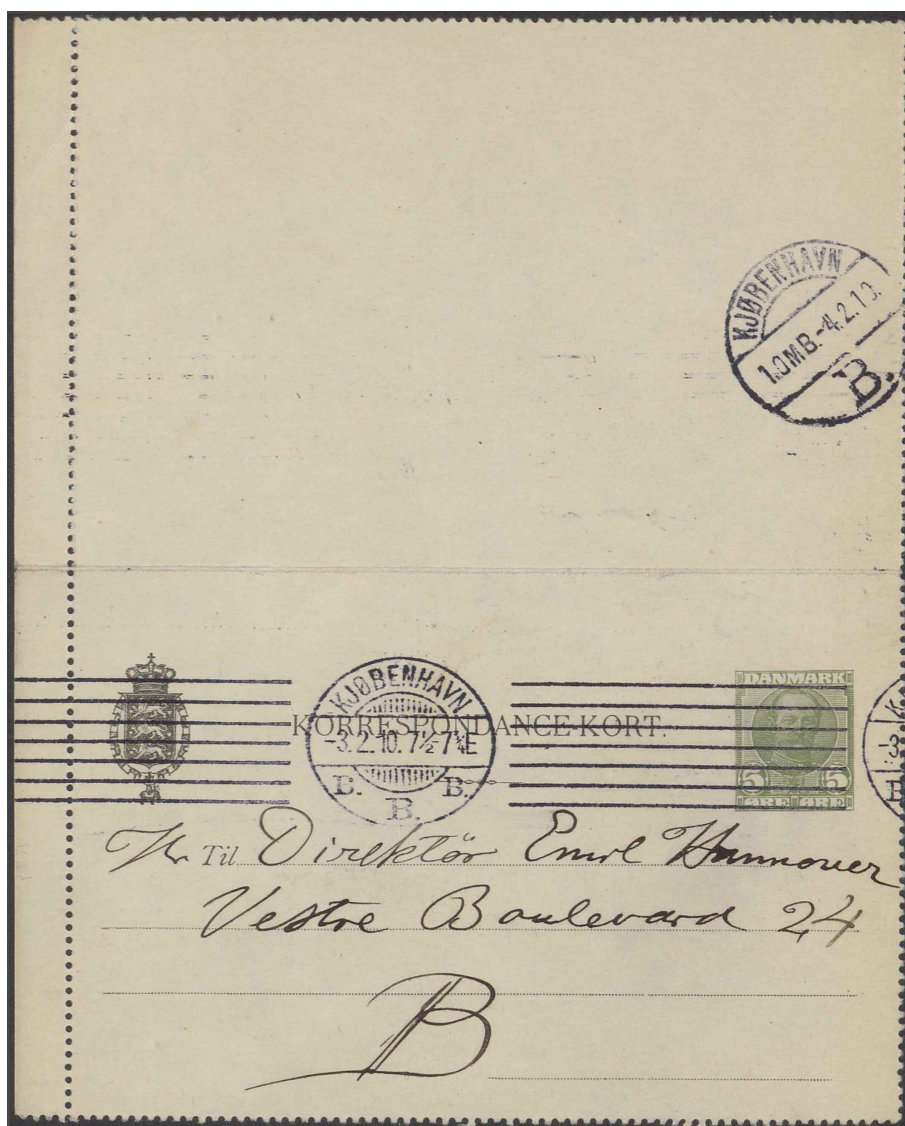 KJØBENHAVN
1.OMB.-4.2.10.
B.
KJØBENHAVN
-3.2.10.7½-7¾E
B. B. B.
KORRESPONDANCE-KORT.
DANMARK
5 5
ØRE ØRE
-3
B
Hr Til Direktör Emil Hannover
Vestre Boulevard 24
B